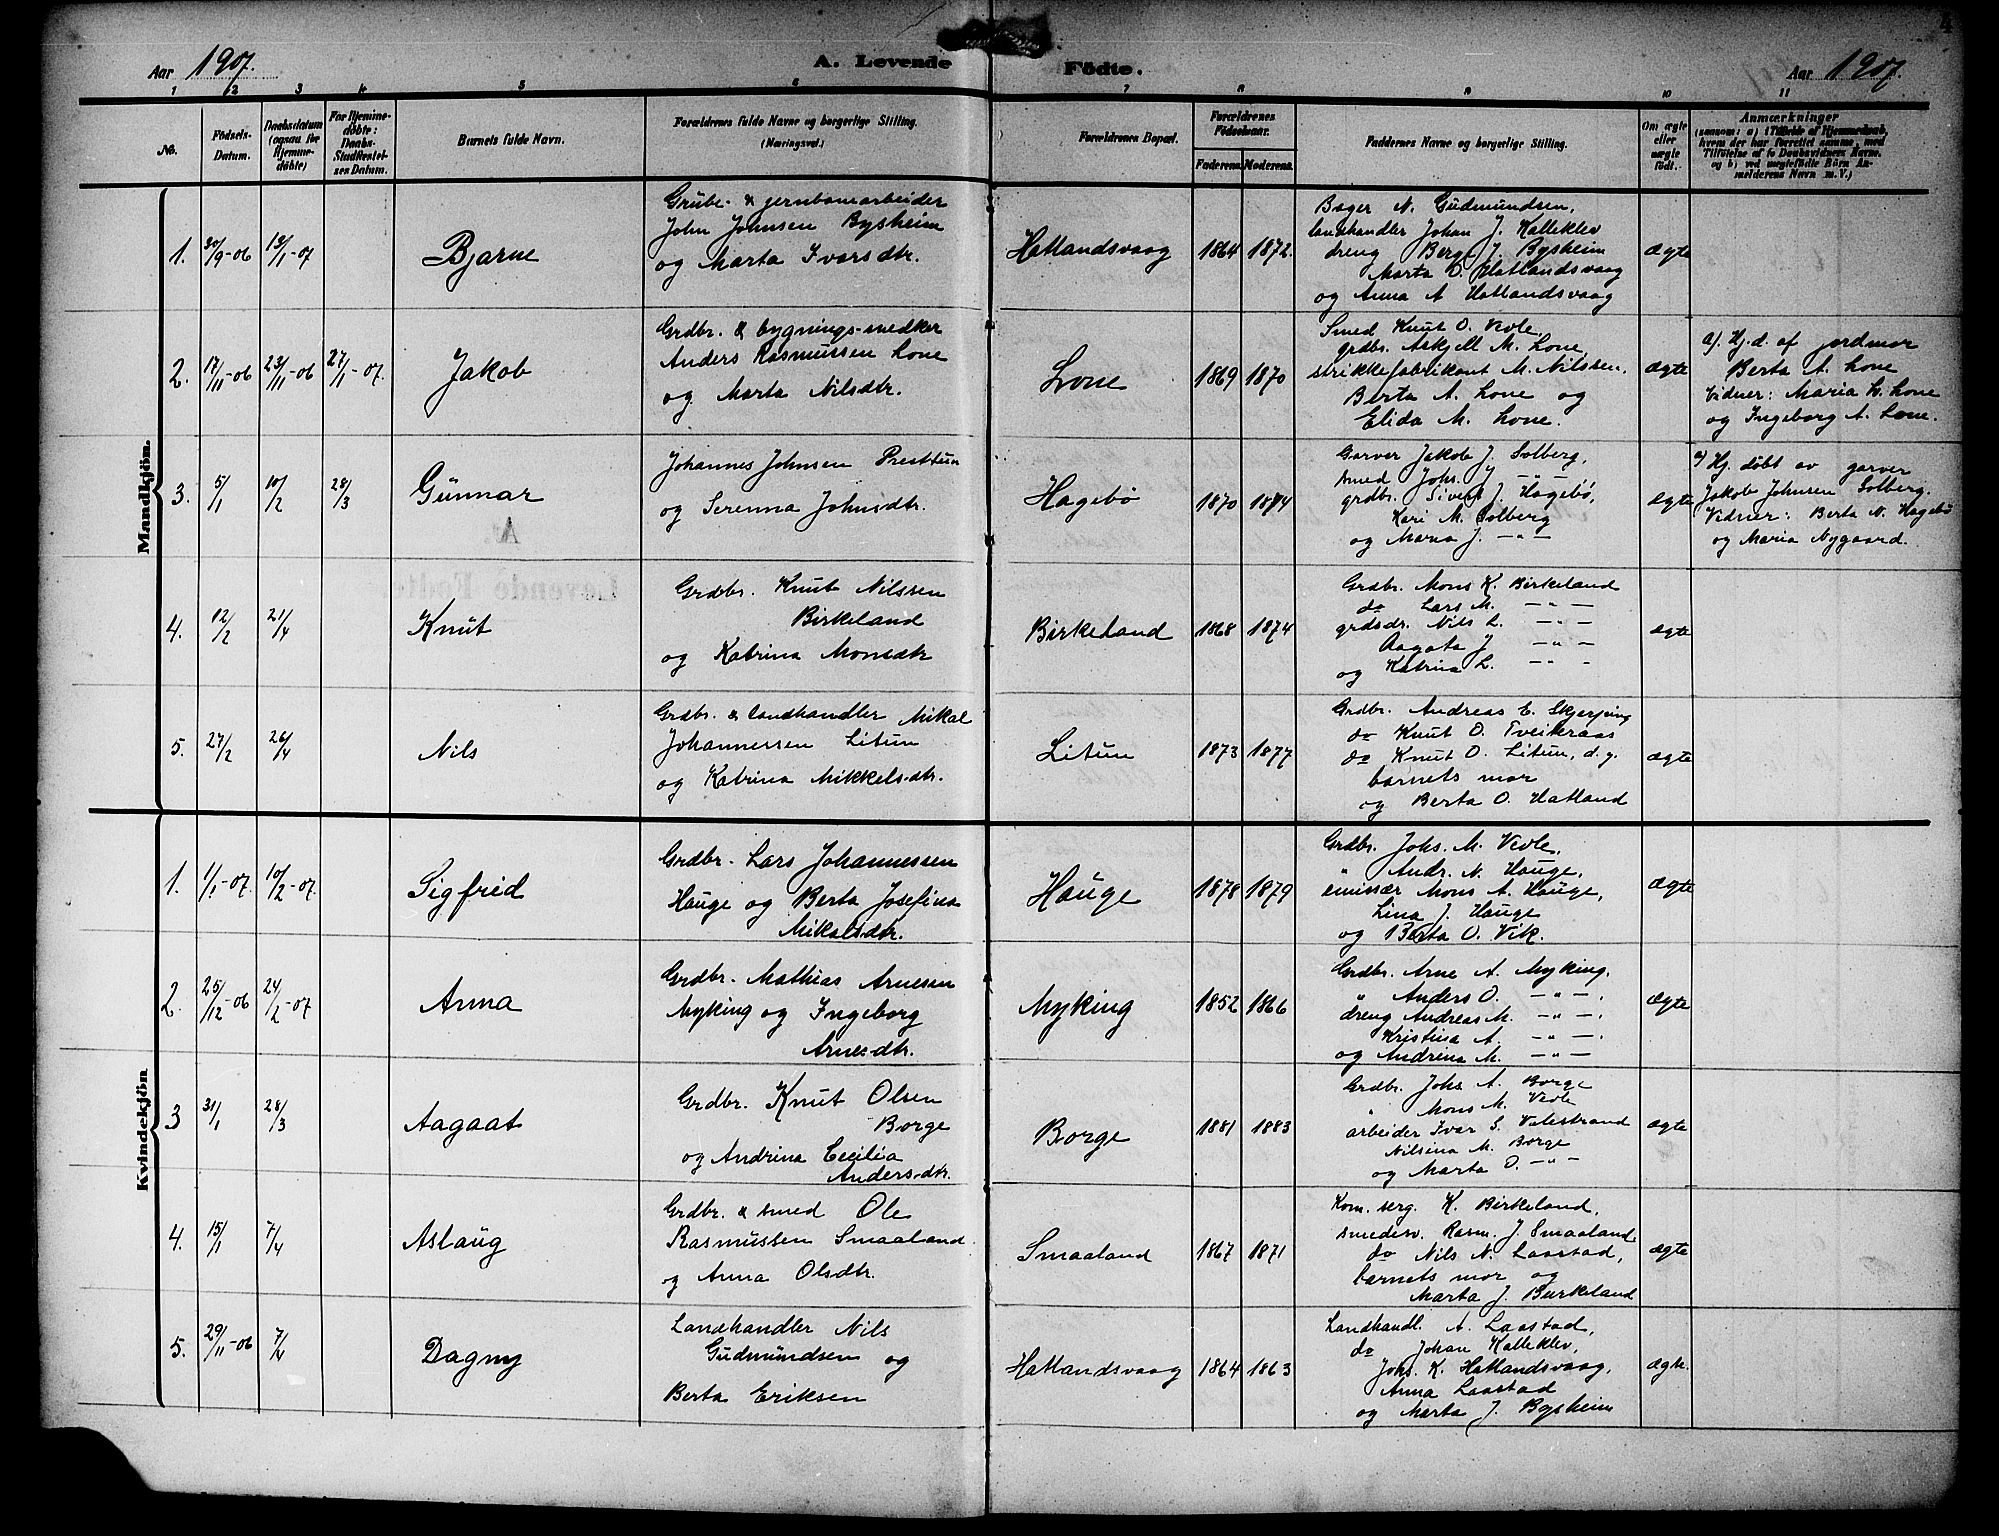 Aar 1907. A. Levende Födte. Aar 1907.
1 2 3 4 5 6 7 8 9 10 11
No.
Födsels-Datum.
Daabsdatum (ogsaa for Hjemmedöbte)
For Hjemmedöbte: Daabs-Stadfæstelses Datum.
Barnets fulde Navn.
Forældrenes fulde Navne og borgerlige Stilling. (Næringsvei.)
Forældrenes Bopæl.
Forældrenes Födselsaar.
Faderens. Moderens.
Faddernes Navne og borgerlige Stilling.
Om ægte eller uægte födt.
Anmærkninger
(saasom: a) i Tilfælde af Hjemmedaab, hvem der har forrettet samme, med Tilföielse af to Daabsvidners Navne, og b) ved uægtefödte Börn Anmelderens Navn m. V.)
Mandkjön.
1. 30/9-06 13/1-07 Bjarne
Grube- & jernbanearbeider
John Johnsen Bysheim
og Marta Ivarsdtr.
Hatlandsvaag 1864 1872.
Bager N. Gudmundsen,
landhandler Johan J. Kalleklev
dreng Berge J. Bysheim
Marta O. Hatlandsvaag
og Anna A Hatlandsvaag
ægte
2. 17/11-06 23/11-06 27/1-07. Jakob
Grdbr. & bygnings-snedker
Anders Rasmussen Lone
og Marta Nilsdtr.
Lone 1869 1870
Smed Knut O. Veole,
grdbr. Askjell M. Lone,
strikkefabrikant M. Nilssen,
Berta A. Lone og
Elida M. Lone.
ægte
a). Hj. d. af jordmor
Berta A. Lone
Vidner: Maria L. Lone
og Ingeborg A. Lone.
3. 5/1 10/2 28/3 Gunnar
Johannes Johnsen Presttun
og Serenna Johnsdtr.
Hagebø 1870 1874
Garver Jakob J. Solberg,
smed Johs. J — " —
grdbr. Sivert J. Hagebø,
Kari M. Solberg
og Maria J. — " —
ægte
a) Hj. døbt av garver
Jakob Johnsen Solberg.
Vidner: Berta N. Hagebø
og Maria Nygaard.
4. 12/2 21/4 Knut
Grdbr. Knut Nilssen
Birkeland
og Katrina Monsdtr
Birkeland 1868 1874
Grdbr. Mons K. Birkeland
do Lars M. — " —
grdsdr. Nils L. — " —
Aagata J — " —
og Katrina L. — " —
ægte
5. 27/2 26/4 Nils
Grdbr. & landhandler Mikal
Johannessen Litun
og Katrina Mikkelsdtr.
Litun 1873 1877
Grdbr. Andreas E. Skjerping
do Knut O. Tveiteraas
do Knut O. Litun, d. y.
barnets mor
og Berta O. Hatland
ægte
Kvindekjön
1. 1/1-07. 10/2-07. Sigfrid
Grdbr. Lars Johannessen
Hauge og Berta Josefina
Mikalsdtr.
Hauge 1878 1879
Grdbr. Johs. M. Veole,
" Andr. N. Hauge,
eminær Mons A. Hauge,
Lina J. Hauge
og Berta O. Vik.
ægte
2. 25/12-06 24/2-07 Anna
Grdbr. Mathias Arnesen
Myking og Ingeborg
Arnesdtr.
Myking 1852 1866
Grdbr. Arne A. Myking,
" Anders O. — " —.
dreng Andreas M. — " —.
Kristina A. — " —.
og Andrina M. — " —
ægte
3 31/1 28/3 Aagaat
Grdbr. Knut Olsen
Borge
og Andrina Cecilia
Andersdtr.
Borge 1881 1883
Grdbr. Johs A. Borge
" Mons M. Veole
arbeider Ivar S. Valestrand
Nilsina M. Borge
og Marta O. — " —
ægte
4. 15/1 7/4 Aslaug
Grdbr. & smed Ole
Rasmussen Smaaland
og Anna Olsdtr.
Smaaland 1867 1871
Kom. serg. K. Birkeland,
smedesv. Rasm. J. Smaaland,
do Nils N. Laastad,
barnets mor og
Marta J. Birkeland
ægte
5. 29/11-06 7/4 Dagny
Landhandler Nils
Gudmundsen og
Berta Eriksen
Hatlandsvaag 1864 1863
Landhandl. A. Laastad,
do Johan Kalleklev,
Johs. K. Hatlandsvaag,
Anna Laastad
og Marta J. Bysheim
ægte.